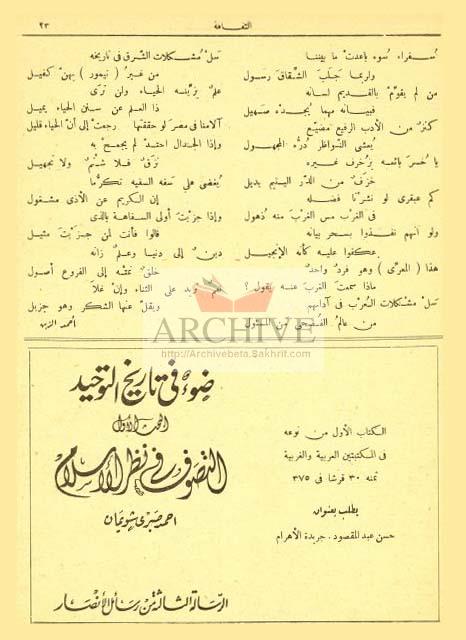 ٢٣
الثقافة
سفراء سوء باعدت ما بيننا
ولربما جلب الشقاق رسول
من لم يقوّم بالقديم لسانه
فبيانه مهما يجدده ضئيل
كنز من الأدب الرفيع مضيّع
يعشى النواظر دره المجهول
يا خسر بائعه بزخرف غيره
خزف من الدر اليتيم بديل
كم عبقرى لو نشرنا فضله
فى الغرب مس الغرب منه ذهول
ولو أنهم نفذوا بسحر بيانه
عكفوا عليه كأنه الإنجيل
هذا ( المعرى ) وهو فرد واحد
ماذا سمعت الغرب عنه يقول ؟
سل مشكلات العرب فى آدابهم
من عالم الفلوجى من المسئول
سل مشكلات الشرق فى تاريخه
من غير ( تيمور ) بهن كفيل
علم يزينه الحياء ولن ترى
ذا العلم عن سنن الحياء يميل
آلامنا فى مصر لو حققتها
رجعت إلى أن الحياء قليل
وإذا الجدال احتد لم يجمح به
نزق فلا شتم ولا تجهيل
يغضى على سفه السفيه تكرما
إن الكريم عن الأذى مشغول
وإذا جزيت أولى السفاهة بالذى
قالوا فأنت لمن جزيت مثيل
دين إلى دنيا وعلم زانه
خلق نمته إلى الفروع أصول
نعم تزيد على الثناء وإن غلا
ويقل عنها الشكر وهو جزيل
أحمد الزين
ARCHIVE
http://Archivebeta.Sakhrit.com
ضوء فى تاريخ التوحيد
البحث الأول
التصوف فى نظر الإسلام
احمد صبرى شويمان
الرسالة الثالثة من رسائل الأنصار
الكتاب الأول من نوعه
فى المكتبتين العربية والغربية
ثمنه ٣٠ قرشا فى ٣٧٥
يطلب بعنوان
حسن عبد المقصود . جريدة الأهرام